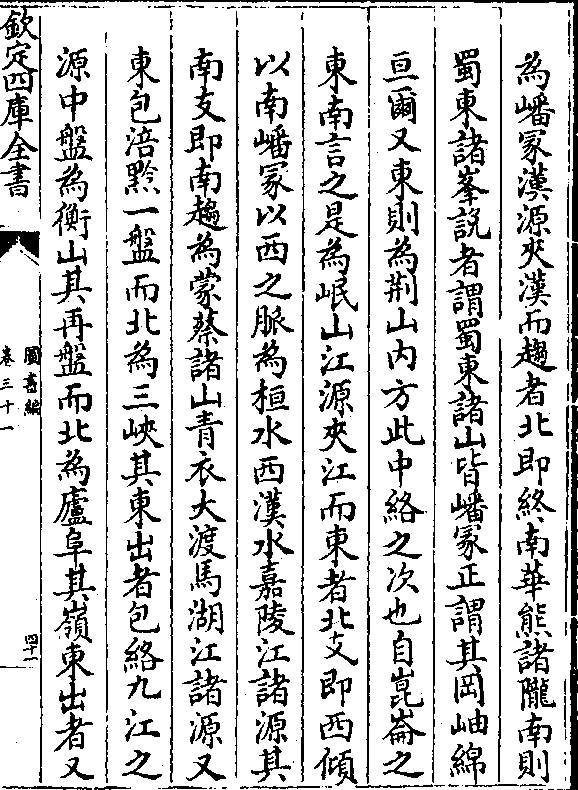 為嶓冢漢源夾漢而趨者北即終南華熊諸隴南則
蜀東諸峯説者謂蜀東諸山皆嶓冢正謂其岡岫綿
亘爾又東則為荆山内方此中絡之次也自崑崙之
東南言之是為岷山江源夾江而東者北支即西傾
以南嶓冢以西之脈為桓水西漢水嘉陵江諸源其
南支即南趨為蒙蔡諸山青衣大渡馬湖江諸源又
東包涪黔一盤而北為三峽其東出者包絡九江之
源中盤為衡山其再盤而北為廬阜其嶺東出者又
欽定四庫全書
圖書編
卷三十一
四十一